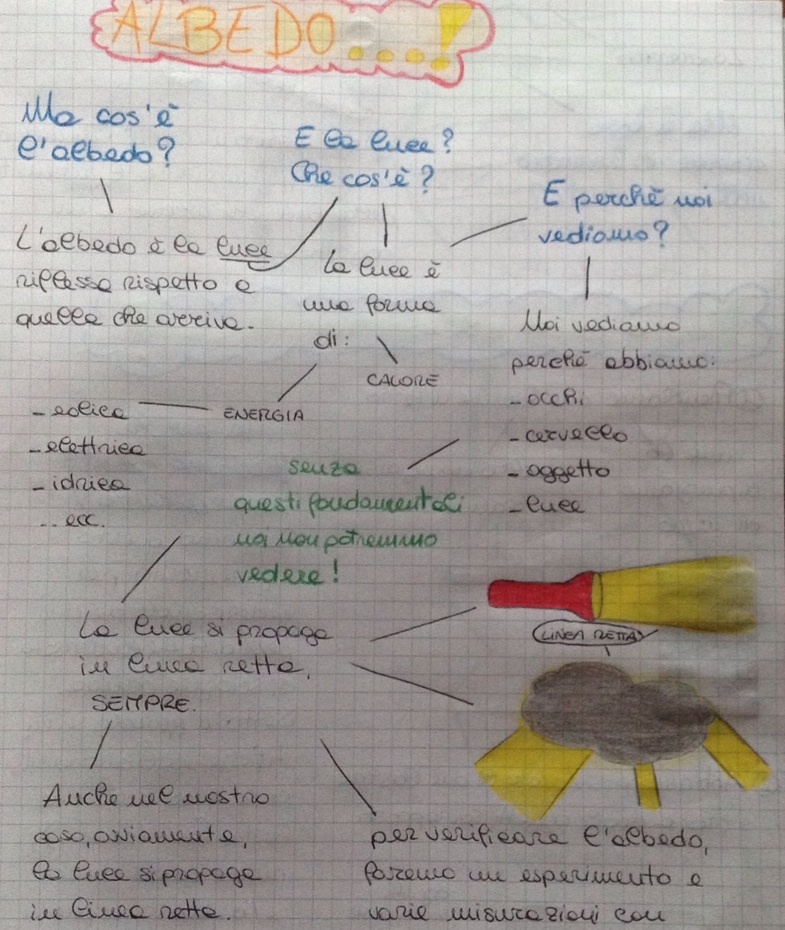 ALBEDO...!
Ma cos'è
l'albedo?
E la luce?
Che cos'è?
E perchè noi
vediamo?
L'albedo è la luce
riflessa rispetto a
quella che arriva.
La luce è
una forma
di:
CALORE
ENERGIA
- eolica
- elettrica
- idrica
... ecc.
Noi vediamo
perchè abbiamo:
- occhi
- cervello
- oggetto
- luce
senza
questi fondamentali
noi non potremmo
vedere!
La luce si propaga
in linea retta,
SEMPRE.
LINEA RETTA
Anche nel nostro
caso, ovviamente,
la luce si propaga
in linea retta.
per verificare l'albedo,
faremo un esperimento e
varie misurazioni con